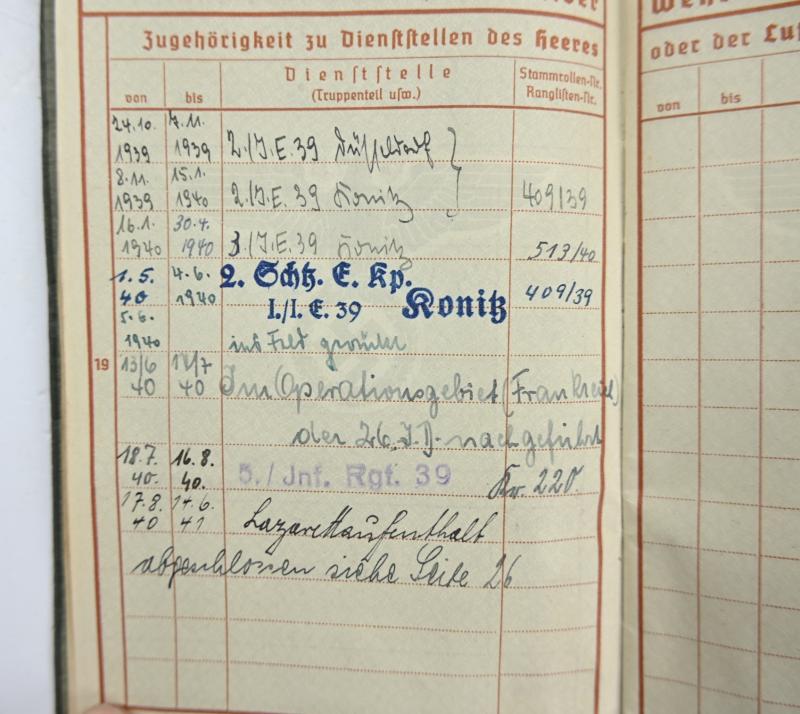 Zugehörigkeit zu Dienststellen des Heeres
von bis Dienststelle (Truppenteil usw.) Stammrollen-Nr. Ranglisten-Nr.
24.10. 1939 7.11. 1939 2./I.E.39 Düsseldorf
8.11. 1939 15.1. 1940 2./I.E.39 Konitz 409/39
16.1. 1940 30.4. 1940 3./I.E.39 Konitz 513/40
1.5. 40 4.6. 1940 2. Schtz. E. Kp. 409/39
I./I. E. 39 Konitz
5.6. 1940 ins Feld gerückt
19
13/6 40 17/7 40 Im Operationsgebiet (Frankreich)
der 26. I.D. nachgeführt
18.7. 40. 16.8. 40. 5./Inf. Rgt. 39 Kr. 220.
17.8. 40 14.6. 41 Lazarettaufenthalt
abgeschlossen siehe Seite 26
oder der
von bis